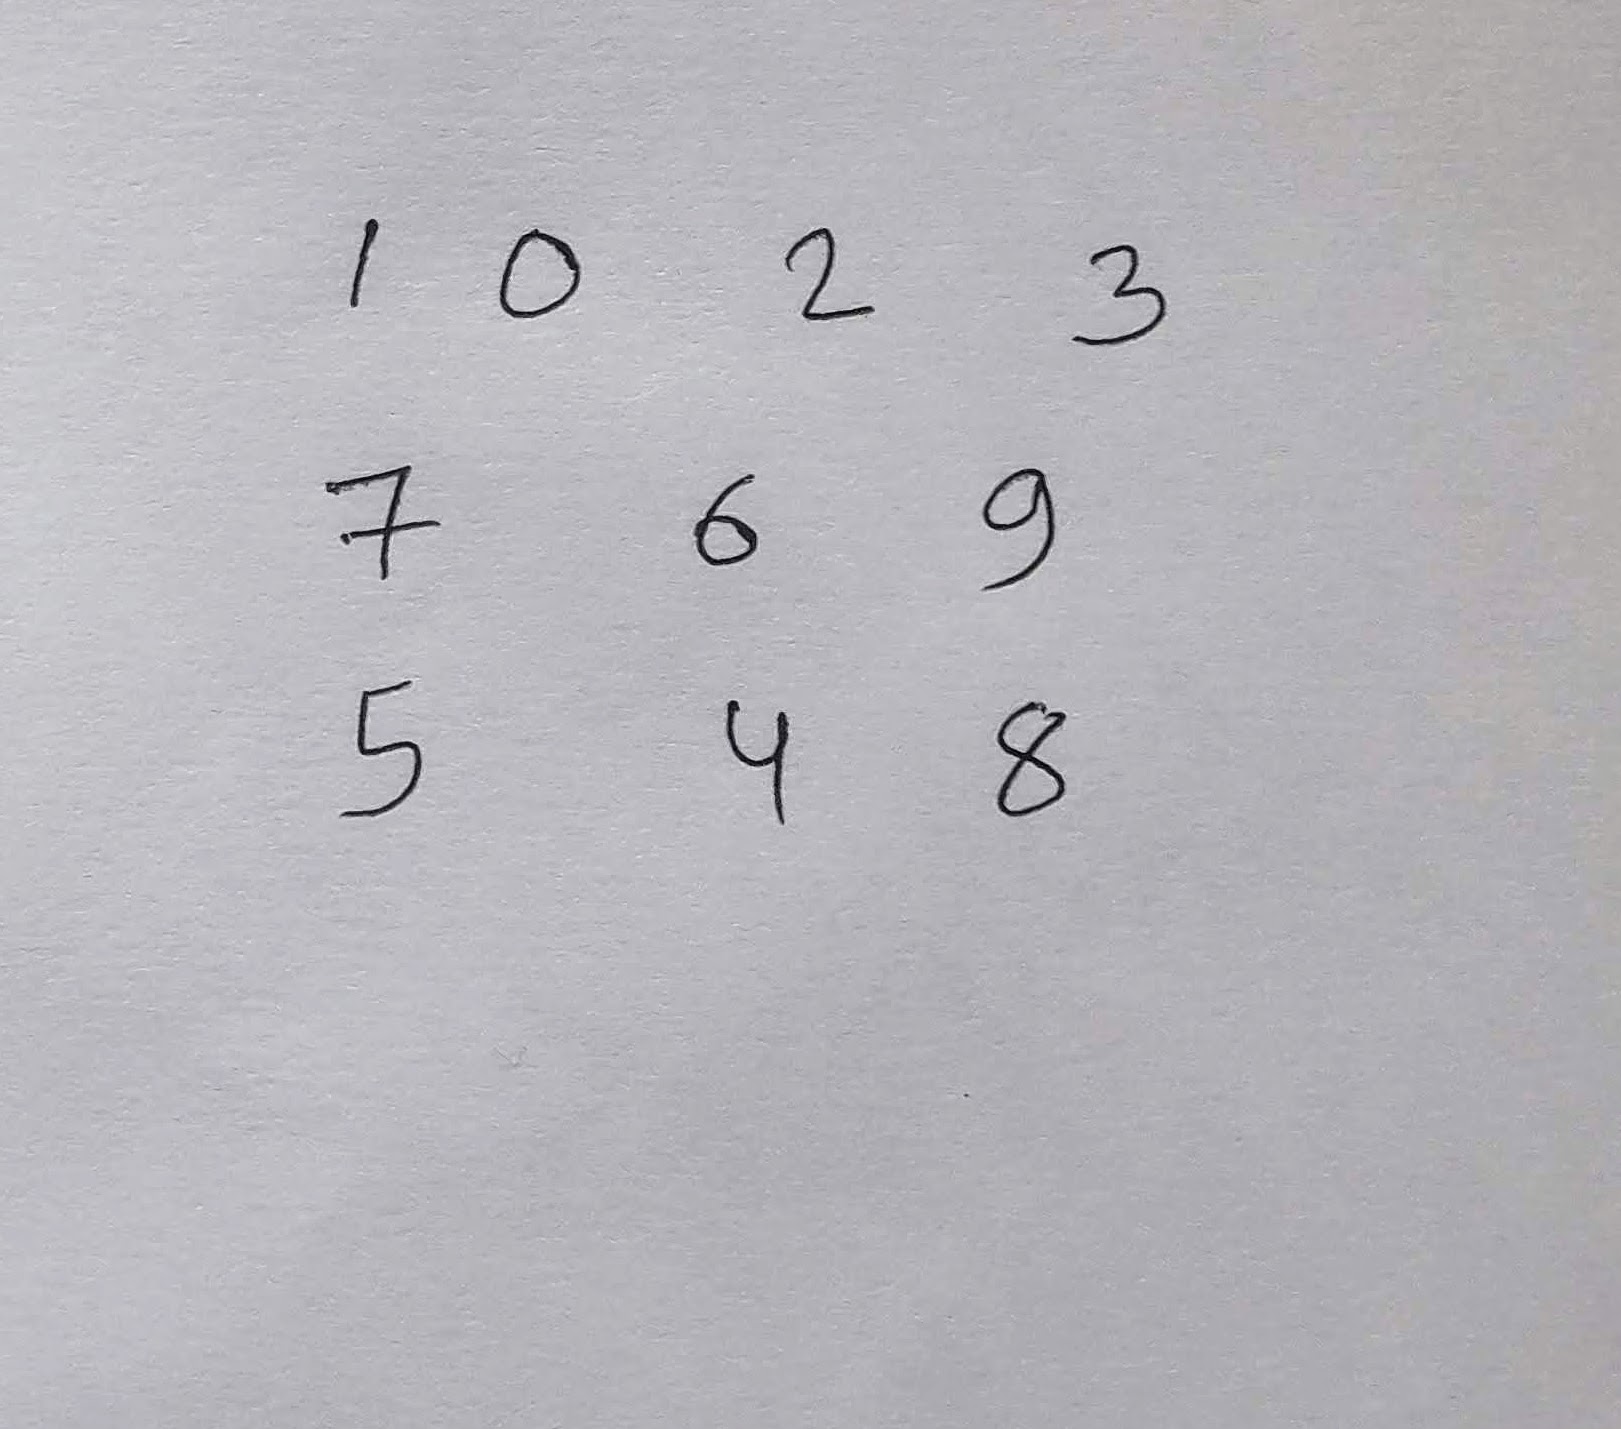 1 0 2 3
7 6 9
5 4 8